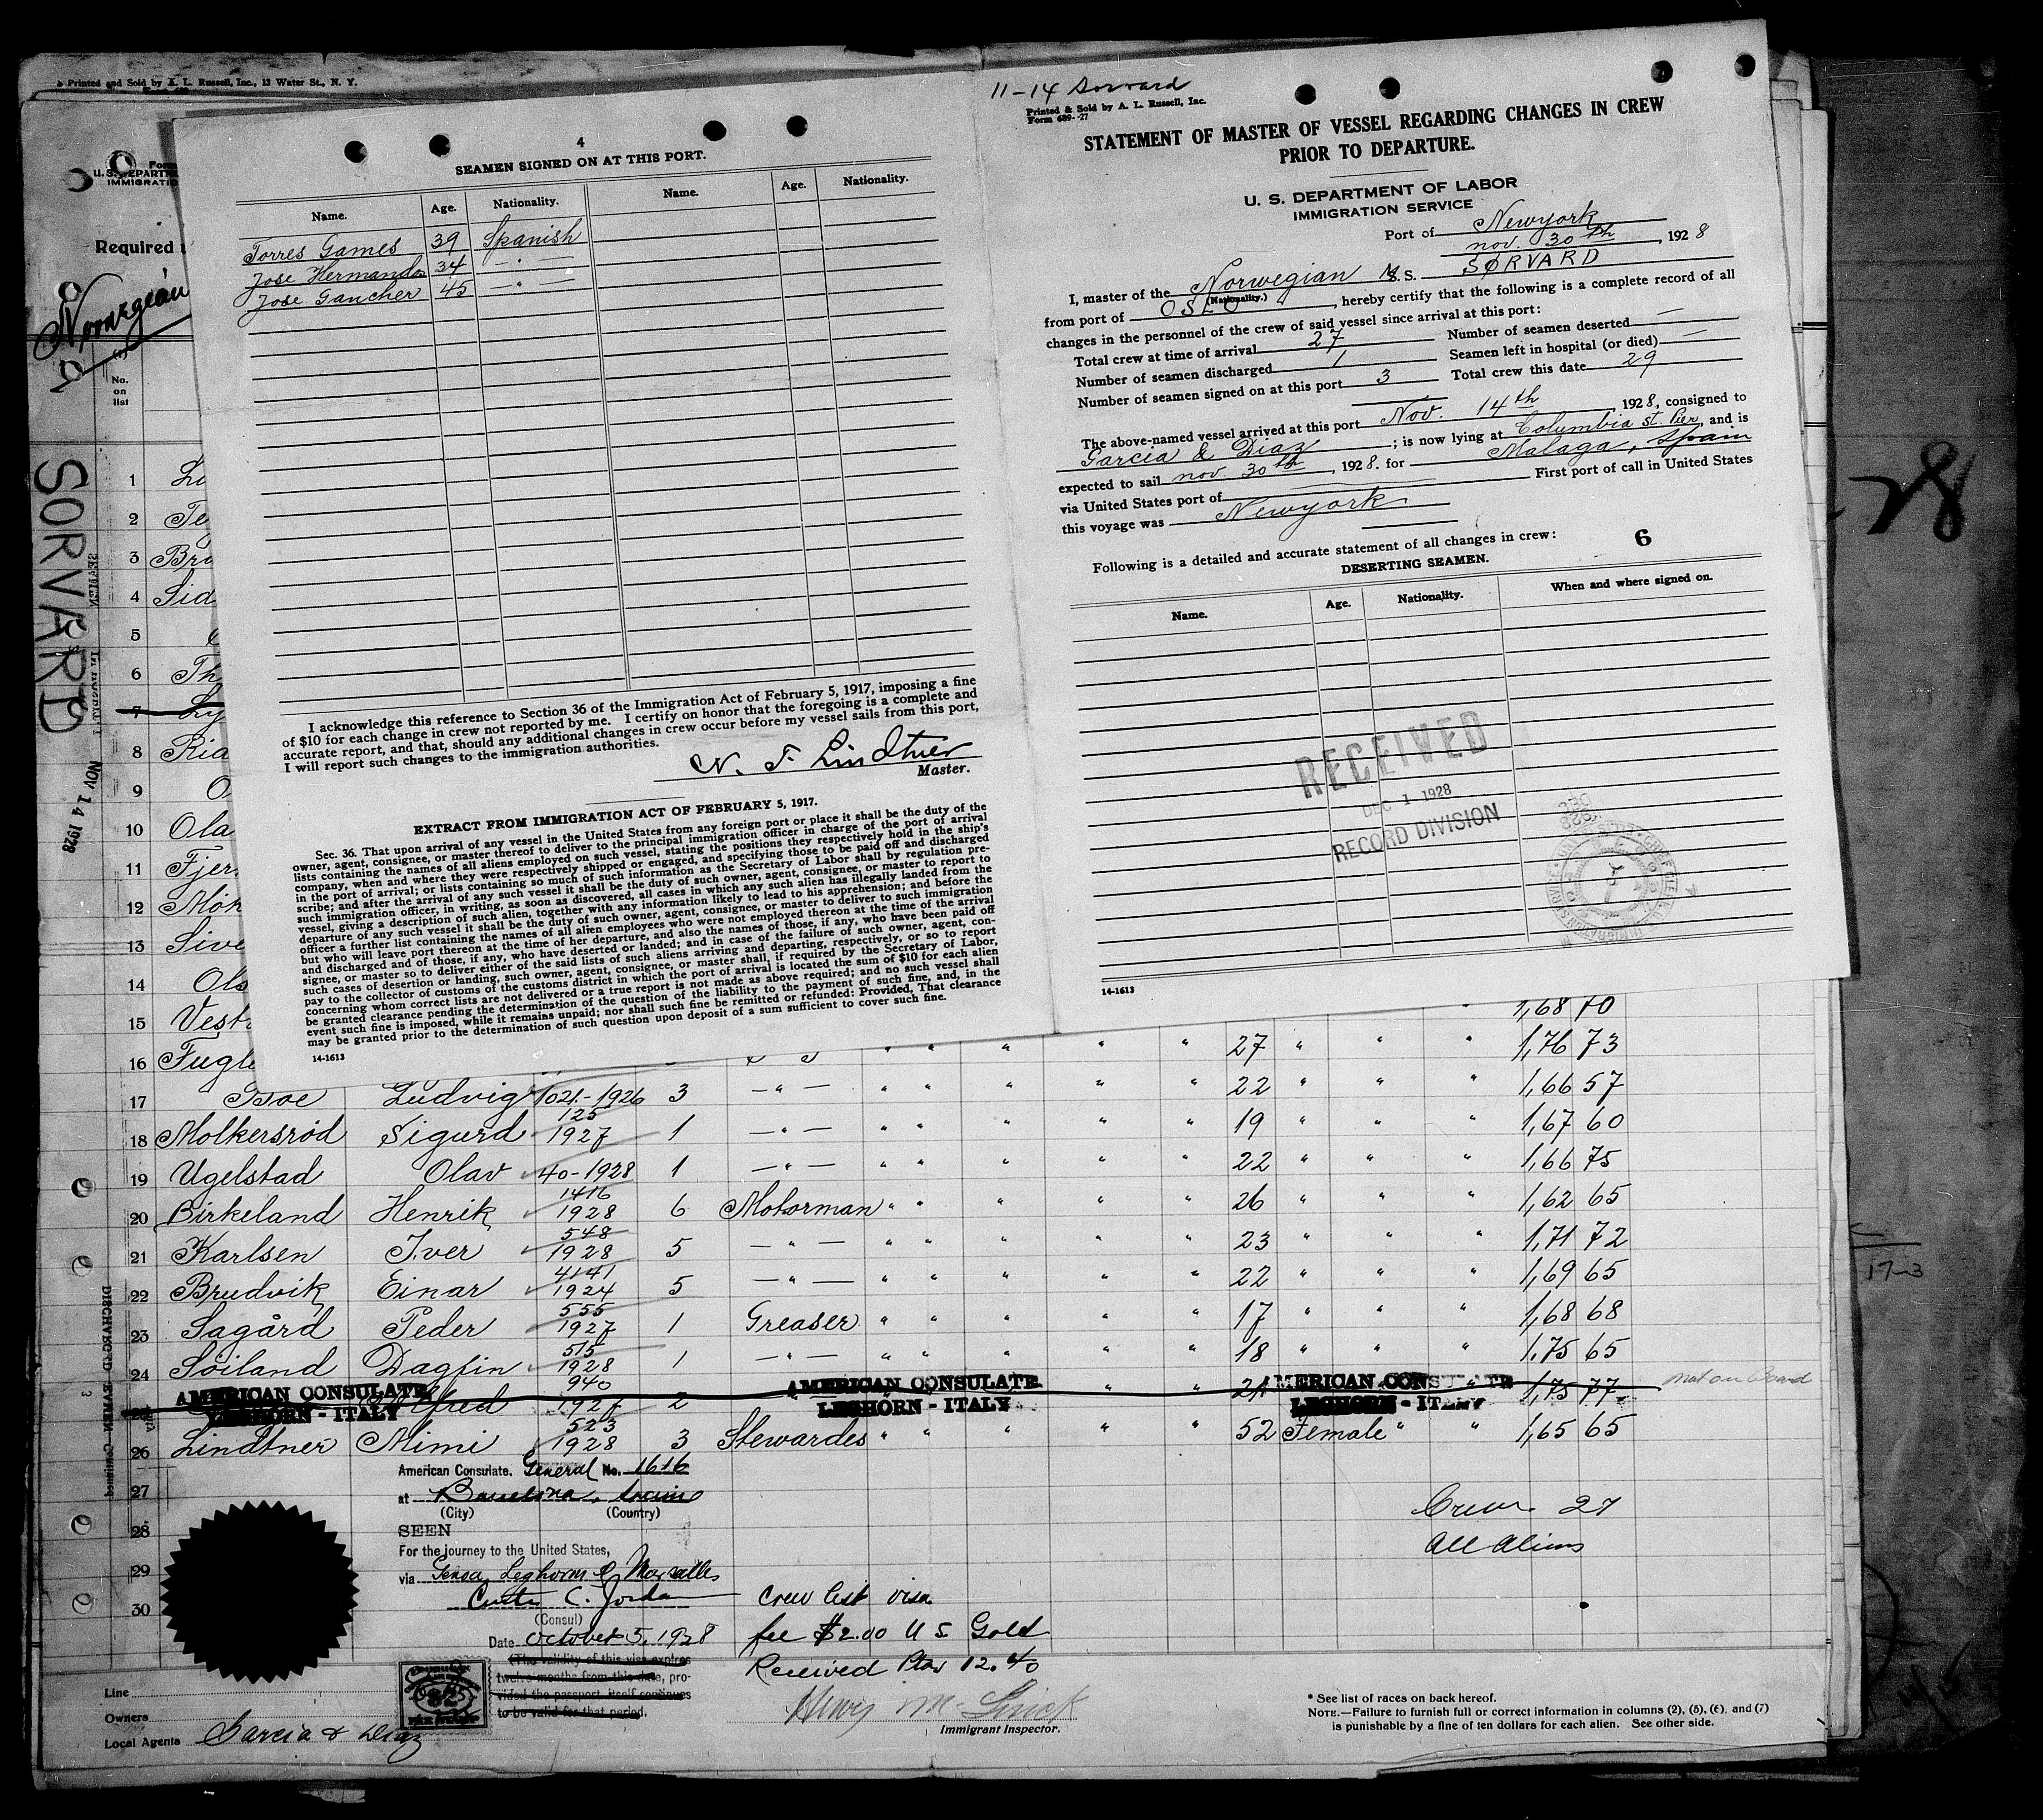 Printed and Sold by A. L. Russell, Inc., 13 Water St., N. Y.
U. S. DEPARTM
IMMIGRATIO
Required
Norwegian
SORVARD
NOV 14 1928
No.
on
list
4
SEAMEN SIGNED ON AT THIS PORT.
Name. Age. Nationality. Name. Age. Nationality.
Torres Games 39 Spanish
Jose Hermandos 34 — " —
Jose Gancher 45 — " —
I acknowledge this reference to Section 36 of the Immigration Act of February 5, 1917, imposing a fine
of $10 for each change in crew not reported by me. I certify on honor that the foregoing is a complete and
accurate report, and that, should any additional changes in crew occur before my vessel sails from this port,
I will report such changes to the immigration authorities.
N. F. Lindtner
Master.
EXTRACT FROM IMMIGRATION ACT OF FEBRUARY 5, 1917.
Sec. 36. That upon arrival of any vessel in the United States from any foreign port or place it shall be the duty of the
owner, agent, consignee, or master thereof to deliver to the principal immigration officer in charge of the port of arrival
lists containing the names of all aliens employed on such vessel, stating the positions they respectively hold in the ship's
company, when and where they were respectively shipped or engaged, and specifying those to be paid off and discharged
in the port of arrival; or lists containing so much of such information as the Secretary of Labor shall by regulation pre-
scribe; and after the arrival of any such vessel it shall be the duty of such owner, agent, consignee, or master to report to
such immigration officer, in writing, as soon as discovered, all cases in which any such alien has illegally landed from the
vessel, giving a description of such alien, together with any information likely to lead to his apprehension; and before the
departure of any such vessel it shall be the duty of such owner, agent, consignee, or master to deliver to such immigration
officer a further list containing the names of all alien employees who were not employed thereon at the time of the arrival
but who will leave port thereon at the time of her departure, and also the names of those, if any, who have been paid off
and discharged and of those, if any, who have deserted or landed; and in case of the failure of such owner, agent, con-
signee, or master so to deliver either of the said lists of such aliens arriving and departing, respectively, or so to report
such cases of desertion or landing, such owner, agent, consignee, or master shall, if required by the Secretary of Labor,
pay to the collector of customs of the customs district in which the port of arrival is located the sum of $10 for each alien
concerning whom correct lists are not delivered or a true report is not made as above required; and no such vessel shall
be granted clearance pending the determination of the question of the liability to the payment of such fine, and, in the
event such fine is imposed, while it remains unpaid; nor shall such fine be remitted or refunded: Provided, That clearance
may be granted prior to the determination of such question upon deposit of a sum sufficient to cover such fine.
14-1613
11-14 Sorvard
Printed & Sold by A. L. Russell, Inc.
Form 689--27
STATEMENT OF MASTER OF VESSEL REGARDING CHANGES IN CREW
PRIOR TO DEPARTURE.
U. S. DEPARTMENT OF LABOR
IMMIGRATION SERVICE
Port of Newyork
nov. 30th, 1928
I, master of the Norwegian M. S. SØRVARD
(Nationality.)
from port of OSLO, hereby certify that the following is a complete record of all
changes in the personnel of the crew of said vessel since arrival at this port:
Total crew at time of arrival 27 Number of seamen deserted —
Number of seamen discharged 1 Seamen left in hospital (or died) —
Number of seamen signed on at this port 3 Total crew this date 29
The above-named vessel arrived at this port Nov. 14th, 1928, consigned to
Garcia & Diaz; is now lying at Columbia St. Pier, and is
expected to sail nov. 30th, 1928. for Malaga, Spain
via United States port of First port of call in United States
this voyage was Newyork.
Following is a detailed and accurate statement of all changes in crew:
6
DESERTING SEAMEN.
Name. Age. Nationality. When and where signed on.
RECEIVED
DEC 1 1928
RECORD DIVISION
14-1613
28
17-3
1
2
3
4 Sid
5
6 Th
7
8
9
10 Ola
11 Tjer
12
13 Sive
14 Ols
15 Vest 1,68 70
16 Fugle " " " " " 27 " " " 1,76 73
17 Ludvig 1021-1926 3 — " — " " " " " 22 " " " 1,66 57
18 Molkersrød Sigurd 125 1927 1 — " — " " " " " 19 " " " 1,67 60
19 Ugelstad Olav 40-1928 1 — " — " " " " " 22 " " " 1,66 75
20 Birkeland Henrik 1416 1928 6 Motorman " " " " " 26 " " " 1,62 65
21 Karlsen Iver 548 1928 5 — " — " " " " " 23 " " " 1,71 72
22 Brudvik Einar 4141 1924 5 — " — " " " " " 22 " " " 1,69 65
23 Sagård Peder 555 1927 1 Greaser " " " " " 17 " " " 1,68 68
24 Soiland Dagfin 515 1928 1 — " — " " " " " 18 " " " 1.75 65
Alfred 940 1927 2 " " 21 1,75 77 not on board
AMERICAN CONSULATE AMERICAN CONSULATE AMERICAN CONSULATE
LEGHORN - ITALY LEGHORN - ITALY LEGHORN - ITALY
26 Lindtner Mimi 523 1928 3 Stewardes " " " " " 52 Female " " 1,65 65
27
28
29
30
American Consulate. General No. 1616
at Barcelona, Spain
(City) (Country)
SEEN
For the journey to the United States,
via Genoa, Leghorn & Marseilles
Curtis C. Jordan
(Consul)
Date October 5, 1928
(The validity of this visa expires
twelve months from this date, pro-
vided the passport itself continues
to be valid for that period.
Crew list visa
fee $2.00 U S Gold
Received Ptas 12.40
Immigrant Inspector.
Crew 27
All Aliens
Line
Owners
Local Agents Garcia & Diaz
* See list of races on back hereof.
NOTE.—Failure to furnish full or correct information in columns (2), (5), (6), and (7)
is punishable by a fine of ten dollars for each alien. See other side.